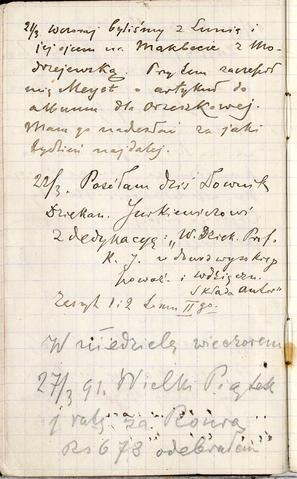 21/3 wczoraj byliśmy z Lunią i
jej ojcem na Makbecie z Mo-
drzejewską. Przytem zaczepił
mię Meyet o artykuł do
albumu dla Orzeszkowej.
Mam go nadesłać za jaki
tydzień najdalej.
22/3. Posłałem dziś Słownik
Dziekan. Jurkiewiczowi
z dedykacyą: „W. Dziek. Prof.
K. J. w dowód wysokiego
poważ. i wdzięczn.
składa autor"
Zeszyt 1 i 2 tomu II go.
W niedzielę wieczorem
27/3 91. Wielki Piątek
j ratę za
Rs 678 odebrałem